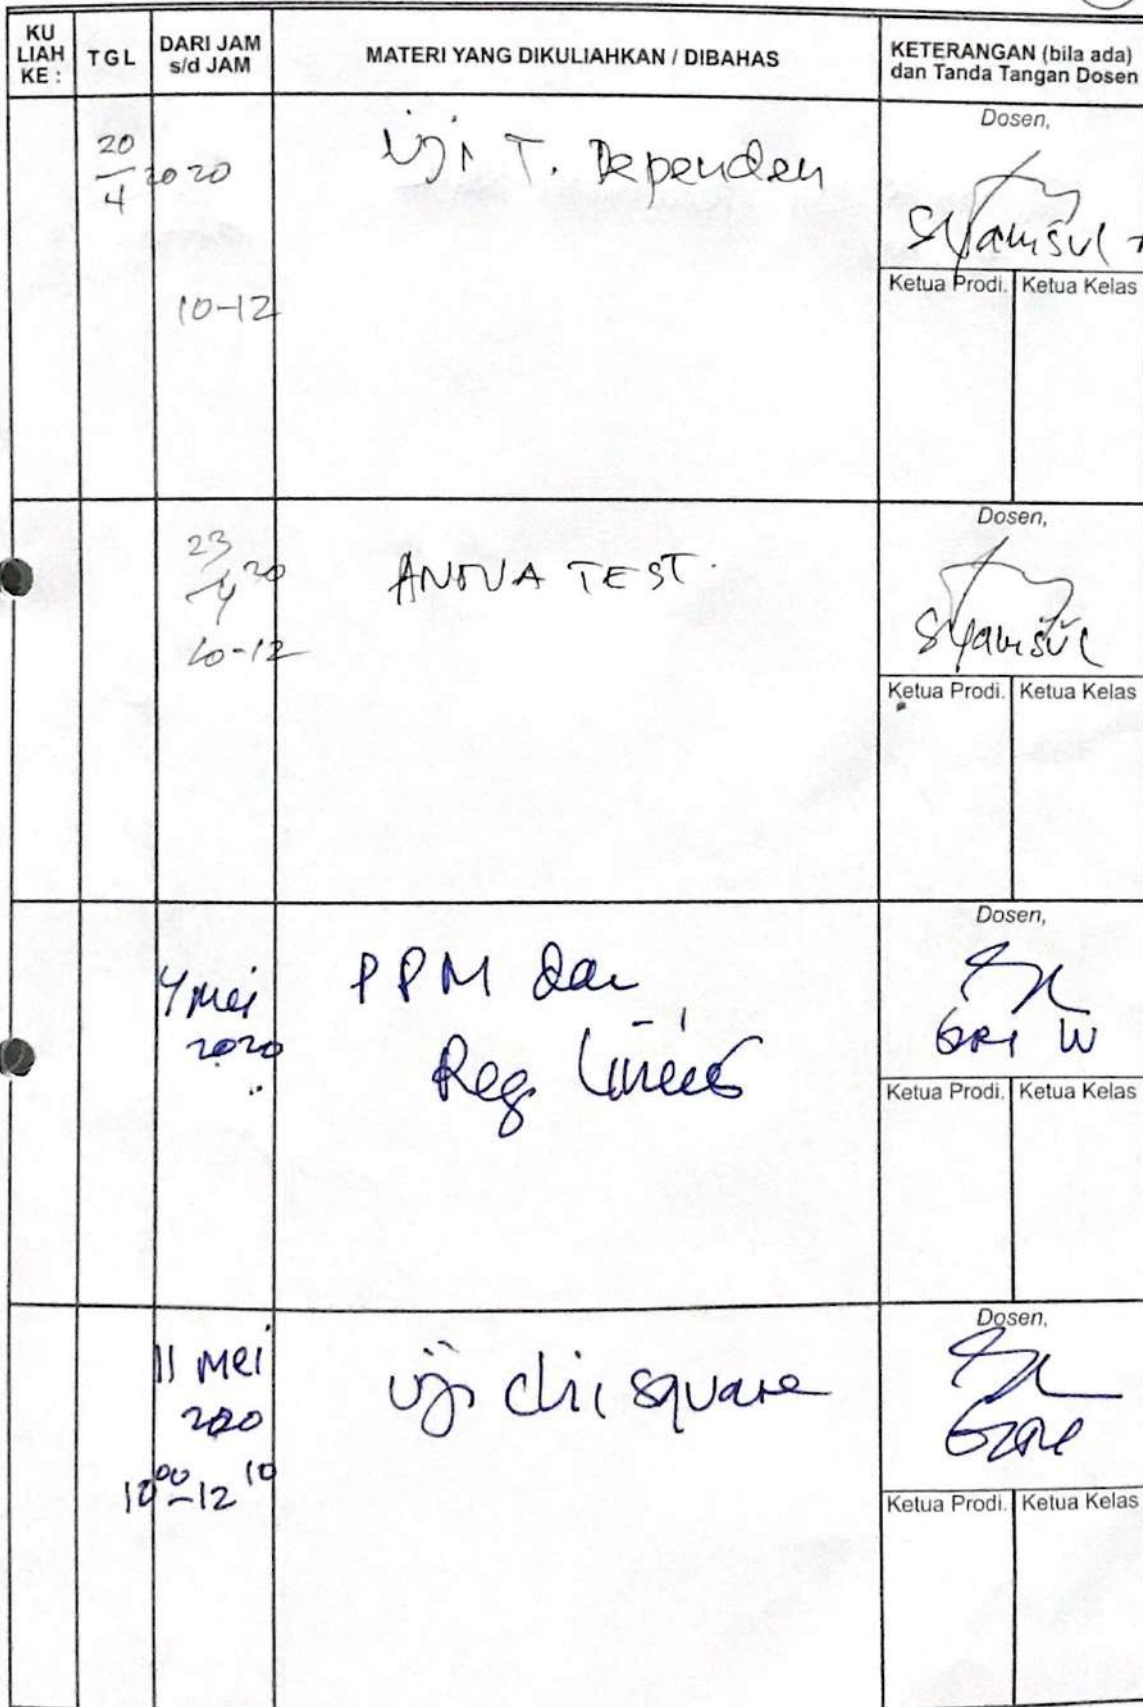 KU LIAH KE :
TGL
DARI JAM s/d JAM
MATERI YANG DIKULIAHKAN / DIBAHAS
KETERANGAN (bila ada) dan Tanda Tangan Dosen
20/4 2020
10-12
Uji T. Dependen
Dosen,
Syamsul
Ketua Prodi.
Ketua Kelas
23/4 20
10-12
ANOVA TEST.
Dosen,
Syamsul
Ketua Prodi.
Ketua Kelas
4 Mei
2020
PPM dan
Reg. Linier
Dosen,
Ketua Prodi.
Ketua Kelas
11 Mei
2020
10 00 - 12 10
Uji chi square
Dosen,
Ketua Prodi.
Ketua Kelas